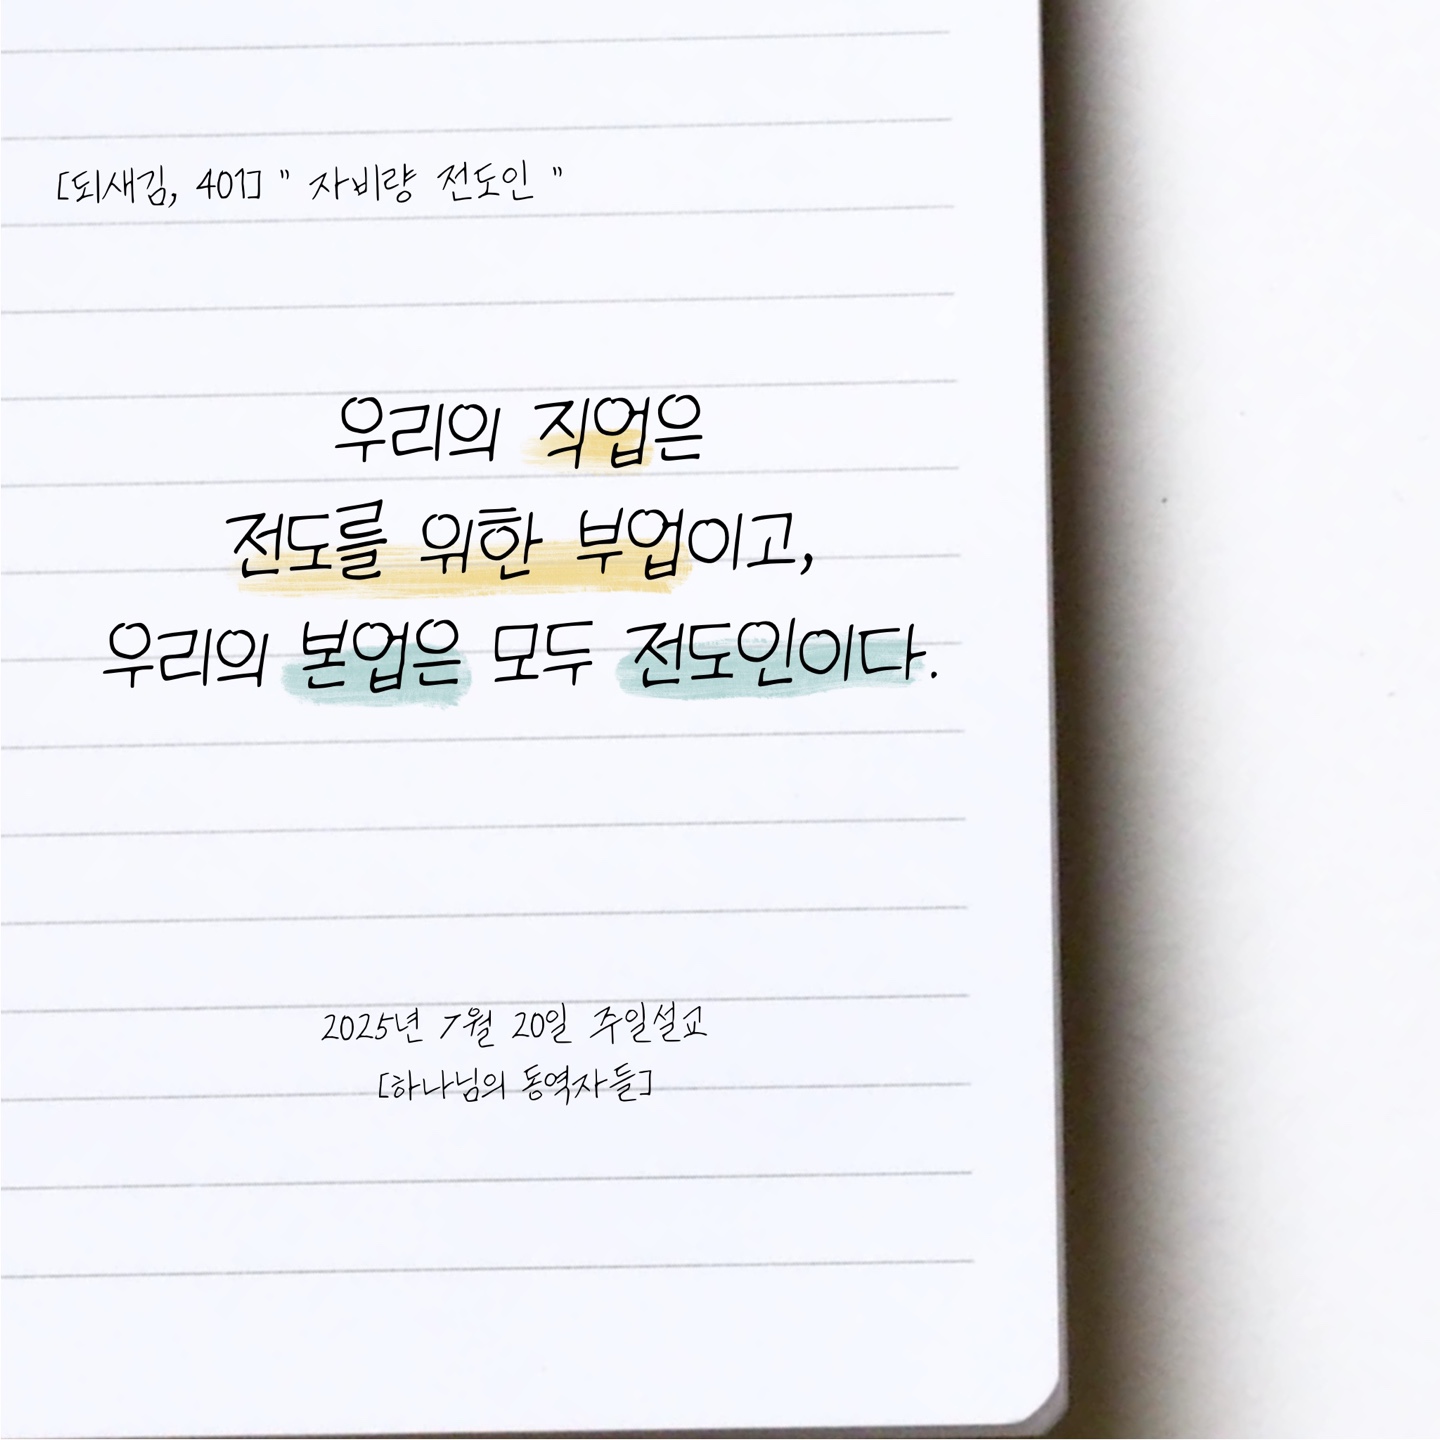 [되새김, 401] " 자비량 전도인 "
우리의 직업은
전도를 위한 부업이고,
우리의 본업은 모두 전도인이다.
2025년 7월 20일 주일설교
[하나님의 동역자들]